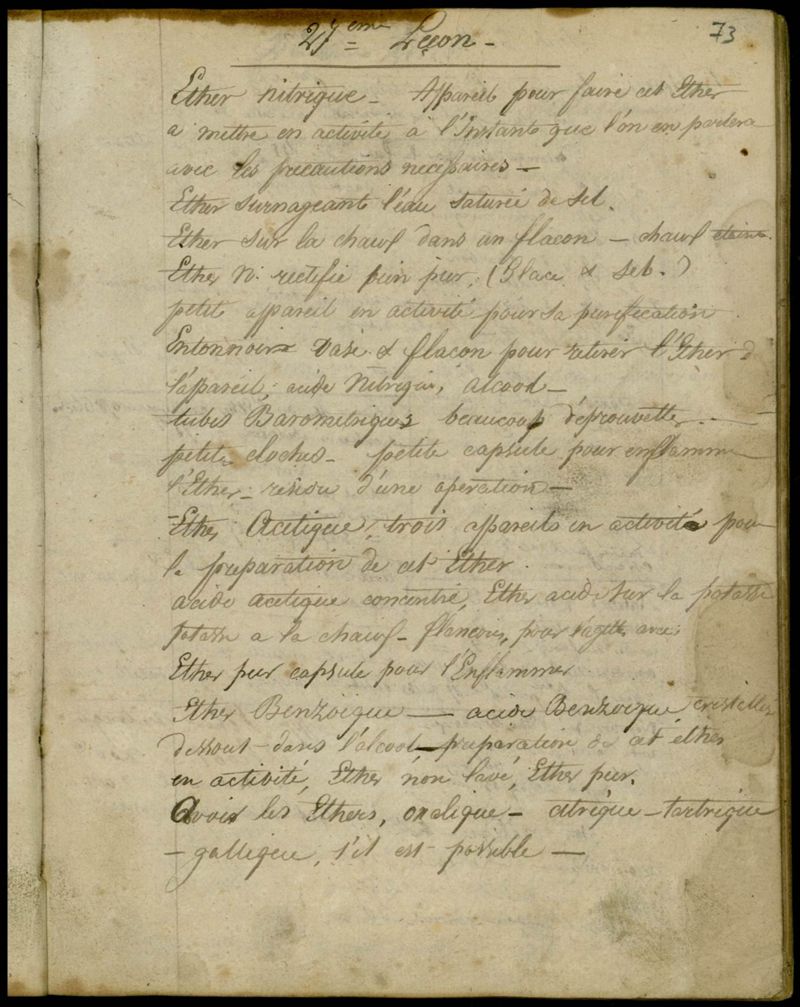 73
27eme Leçon -
Ether nitrique - Appareil pour faire cet Ether
a mettre en activité à l'Instant que l'on en parlera
avec les precautions necessaires -
Ether surnageant l'eau saturée de sel.
Ether sur la chaux dans un flacon - chaux eteinte
Ether N. rectifié bien pur, (Glace & sel.)
petit appareil en activité pour sa purification
Entonnoir vase & flacon pour retirer l'Ether d
l'appareil, acide Nitrique, alcool -
tubes Barometriques beaucoup d'eprouvettes -
petites cloches - petite capsule pour enflammer
l'Ether - d'une operation -
Ether Acetique, trois appareils en activité pour
la preparation de cet Ether.
acide acetique concentré, Ether acide sur la potasse
potasse a la chaux - pour l'agiter avec
Ether pur capsule pour l'Enflammer
Ether Benzoique — acide Benzoique cristallisé
dissout dans l'alcool - preparation de cet éther
en activité, Ether non lavé, Ether pur.
Avoir les Ethers, oxalique - citrique - tartrique
- gallique, s'il est possible -